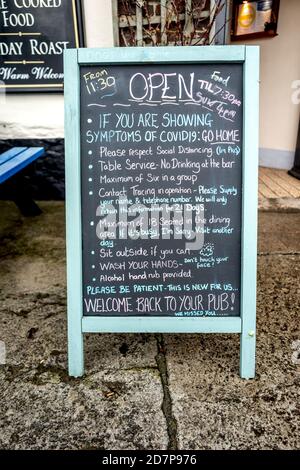 COOKED
FOOD
DAY ROAST
Warm Welcome
From
11:30
OPEN
Food
TILL
7:30PM
SUN 4PM
IF YOU ARE SHOWING
SYMPTOMS OF COVID19: GO HOME
• Please respect SOCIAL Distancing (1m Plus)
• Table Service - No Drinking at the bar
• Maximum of Six in a group
• Contact Tracing in operation - Please Supply
your name & telephone number. We will only
this information for 21 Days.
• Maximum of 18 Seated in the dining
area. If it's busy, I'm Sorry - Visit another
day.
• Sit outside if you can
• WASH YOUR HANDS - Don't touch your
FACE!
• Alcohol hand rub provided.
PLEASE BE PATIENT - THIS IS NEW FOR US..
WELCOME BACK TO YOUR PUB!
WE MISSED YOU...
alamy
Image ID: 2D7P976
www.alamy.com